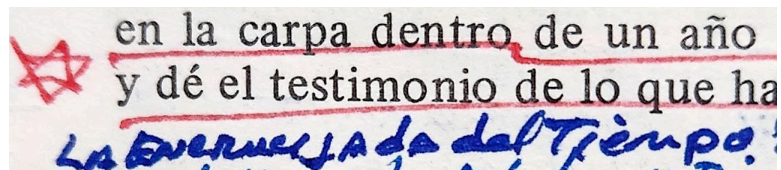 en la carpa dentro de un año
y dé el testimonio de lo que ha
LA ENCRUCIJADA del Tiempo!